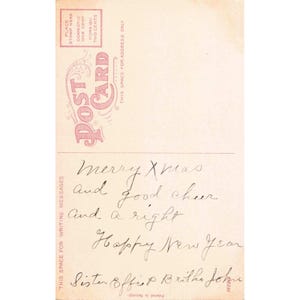 PLACE
STAMP HERE
DOMESTIC
ONE CENT
FOREIGN
TWO CENTS
POST CARD
THIS SPACE FOR ADDRESS ONLY
THIS SPACE FOR WRITING MESSAGES
Merry Xmas
and good cheer
and a right
Happy New Year
Sister Effie & Bertha John
Printed in